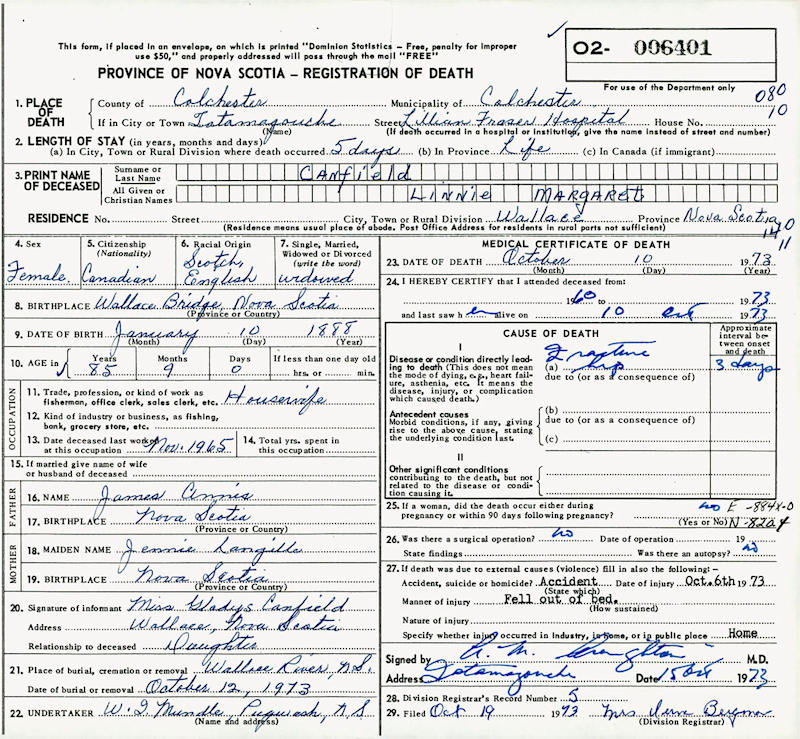 This form, if placed in an envelope, on which is printed "Dominion Statistics – Free, penalty for improper
use $50," and properly addressed will pass through the mail "FREE"
02- 006401
PROVINCE OF NOVA SCOTIA – REGISTRATION OF DEATH
For use of the Department only
080
10
1. PLACE OF DEATH
County of Colchester Municipality of Colchester
If in City or Town Tatamagouche Street Lillian Fraser Hospital House No.
(Name) (If death occurred in a hospital or institution, give the name instead of street and number)
2. LENGTH OF STAY (in years, months and days)
(a) In City, Town or Rural Division where death occurred 5 days (b) In Province Life (c) In Canada (if immigrant)
3. PRINT NAME OF DECEASED
Surname or Last Name CANfield
All Given or Christian Names LINNIE MARGARET
RESIDENCE No. Street City, Town or Rural Division Wallace Province Nova Scotia
(Residence means usual place of abode. Post Office Address for residents in rural parts not sufficient)
11
4. Sex Female
5. Citizenship (Nationality) Canadian
6. Racial Origin Scotch, English
7. Single, Married, Widowed or Divorced (write the word) widowed
8. BIRTHPLACE Wallace Bridge, Nova Scotia
(Province or Country)
9. DATE OF BIRTH January 10 1888
(Month) (Day) (Year)
10. AGE in Years 85 Months 9 Days 0 If less than one day old
hrs. or min.
OCCUPATION
11. Trade, profession, or kind of work as
fisherman, office clerk, sales clerk, etc. Housewife
12. Kind of industry or business, as fishing,
bank, grocery store, etc.
13. Date deceased last worked at this occupation Nov. 1965
14. Total yrs. spent in this occupation
15. If married give name of wife
or husband of deceased
FATHER
16. NAME James Annis
17. BIRTHPLACE Nova Scotia
(Province or Country)
MOTHER
18. MAIDEN NAME Jennie Langille
19. BIRTHPLACE Nova Scotia
(Province or Country)
20. Signature of informant Miss Gladys Canfield
Address Wallace, Nova Scotia
Relationship to deceased Daughter
21. Place of burial, cremation or removal Wallace River, N.S.
Date of burial or removal October 12, 1973
22. UNDERTAKER W. I. Mundle, Pugwash, N S
(Name and address)
MEDICAL CERTIFICATE OF DEATH
23. DATE OF DEATH October 10 1973
(Month) (Day) (Year)
24. I HEREBY CERTIFY that I attended deceased from:
1960 to 1973
and last saw h er alive on 10 Oct 1973
CAUSE OF DEATH
Approximate interval between onset and death
I
Disease or condition directly leading to death (This does not mean the mode of dying, e.g., heart failure, asthenia, etc. It means the disease, injury, or complication which caused death.)
(a) Fracture hip 3 days
due to (or as a consequence of)
Antecedent causes
Morbid conditions, if any, giving rise to the above cause, stating the underlying condition last.
(b)
due to (or as a consequence of)
(c)
II
Other significant conditions
contributing to the death, but not related to the disease or condition causing it.
25. If a woman, did the death occur either during
pregnancy or within 90 days following pregnancy? no
(Yes or No)
26. Was there a surgical operation? no Date of operation 19
State findings Was there an autopsy? no
27. If death was due to external causes (violence) fill in also the following:–
Accident, suicide or homicide? Accident Date of injury Oct.6th 1973
(State which)
Manner of injury Fell out of bed.
(How sustained)
Nature of injury
Specify whether injury occurred in Industry, in home, or in public place Home
Signed by M.D.
Address Tatamagouche Date 15 Oct 1973
28. Division Registrar's Record Number 5
29. Filed Oct 19 1973 Mrs
(Division Registrar)